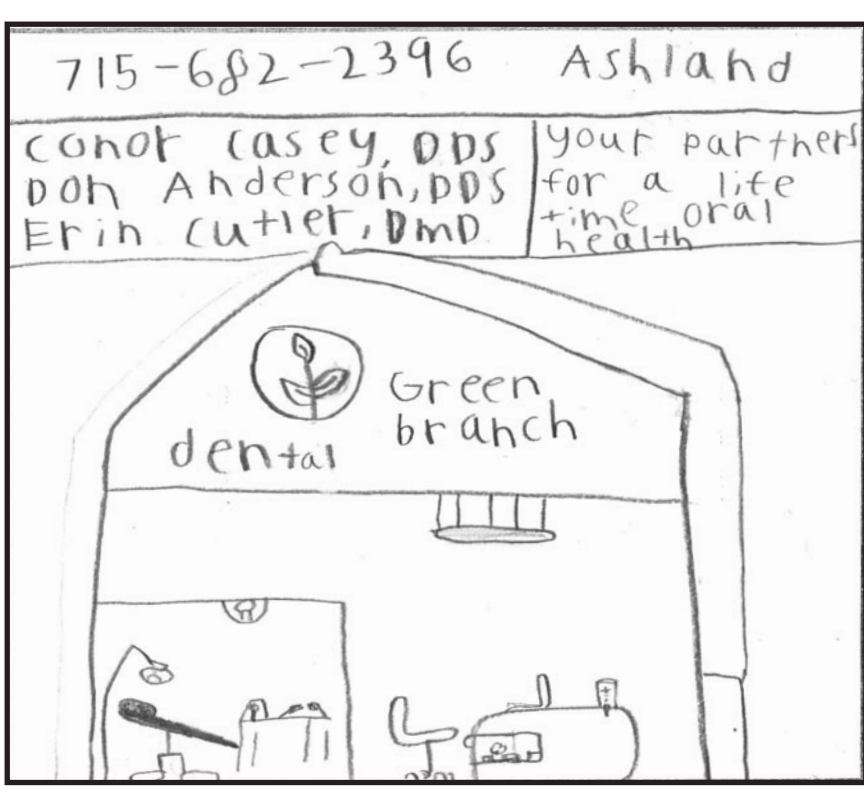 715-682-2396 Ashland
Conor Casey, DDS
Don Anderson, DDS
Erin Cutler, DMD
your partners
for a life
time oral
health
Green
branch
dental